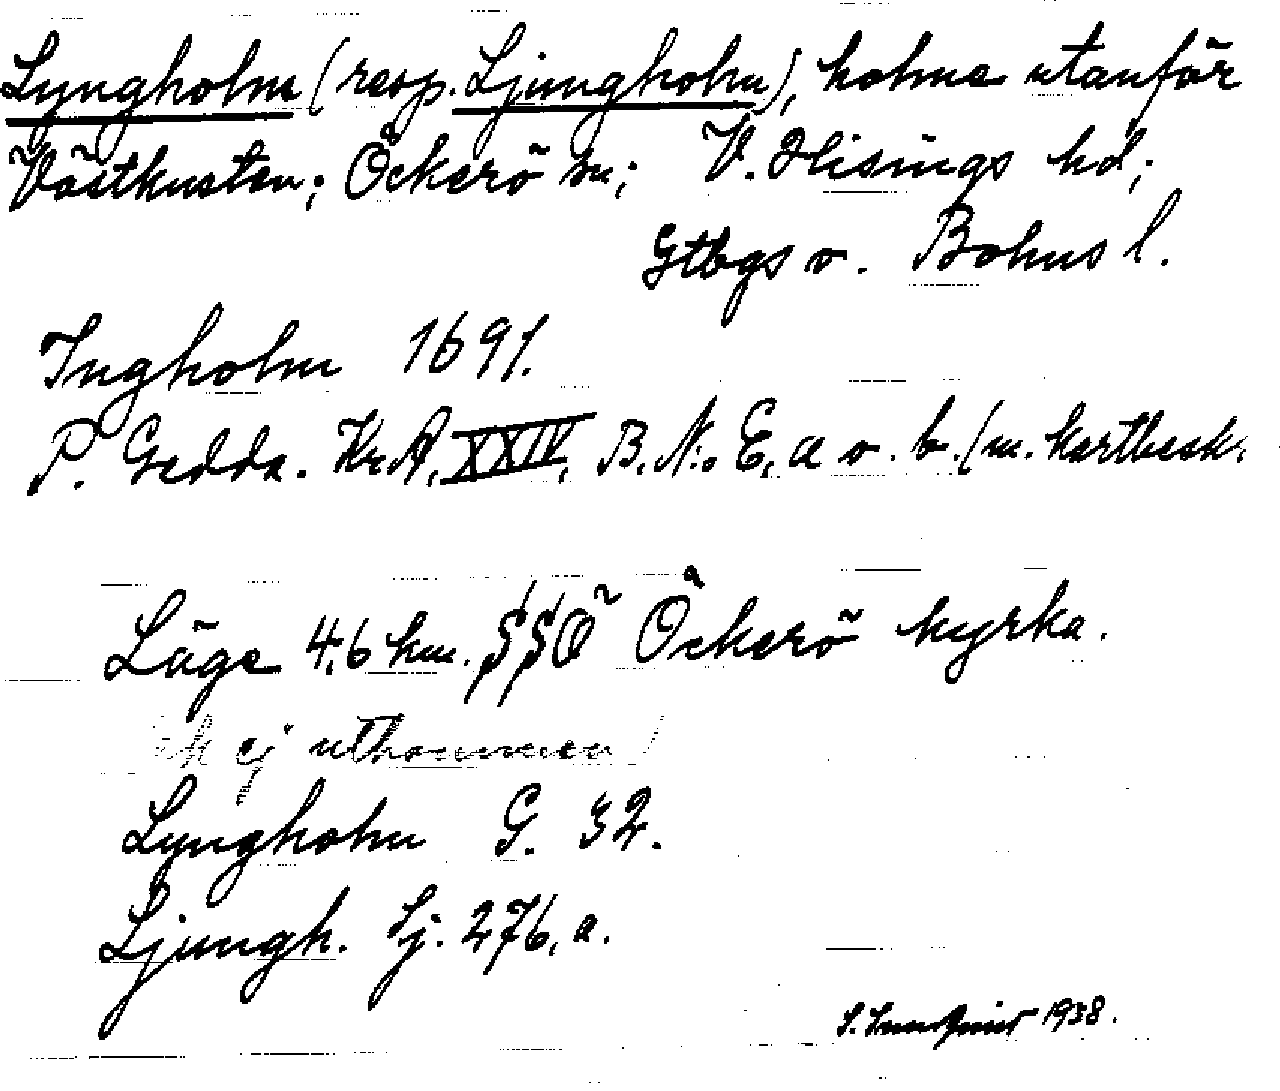 Lyngholm (resp. Ljungholm), holme utanför
Västkusten; Öckerö sn; V. Hisings hd;
Gtbgs o. Bohus l.
Ingholm 1691.
P. Gedda. Kr.A. XXIV, B. N:o E, a o. b. (m. kartbesk.
Läge 4,6 km. SSÖ Öckerö kyrka.
ej utkommen)
Lyngholm G. 32.
Ljungh. Sj. 276, a.
1938.